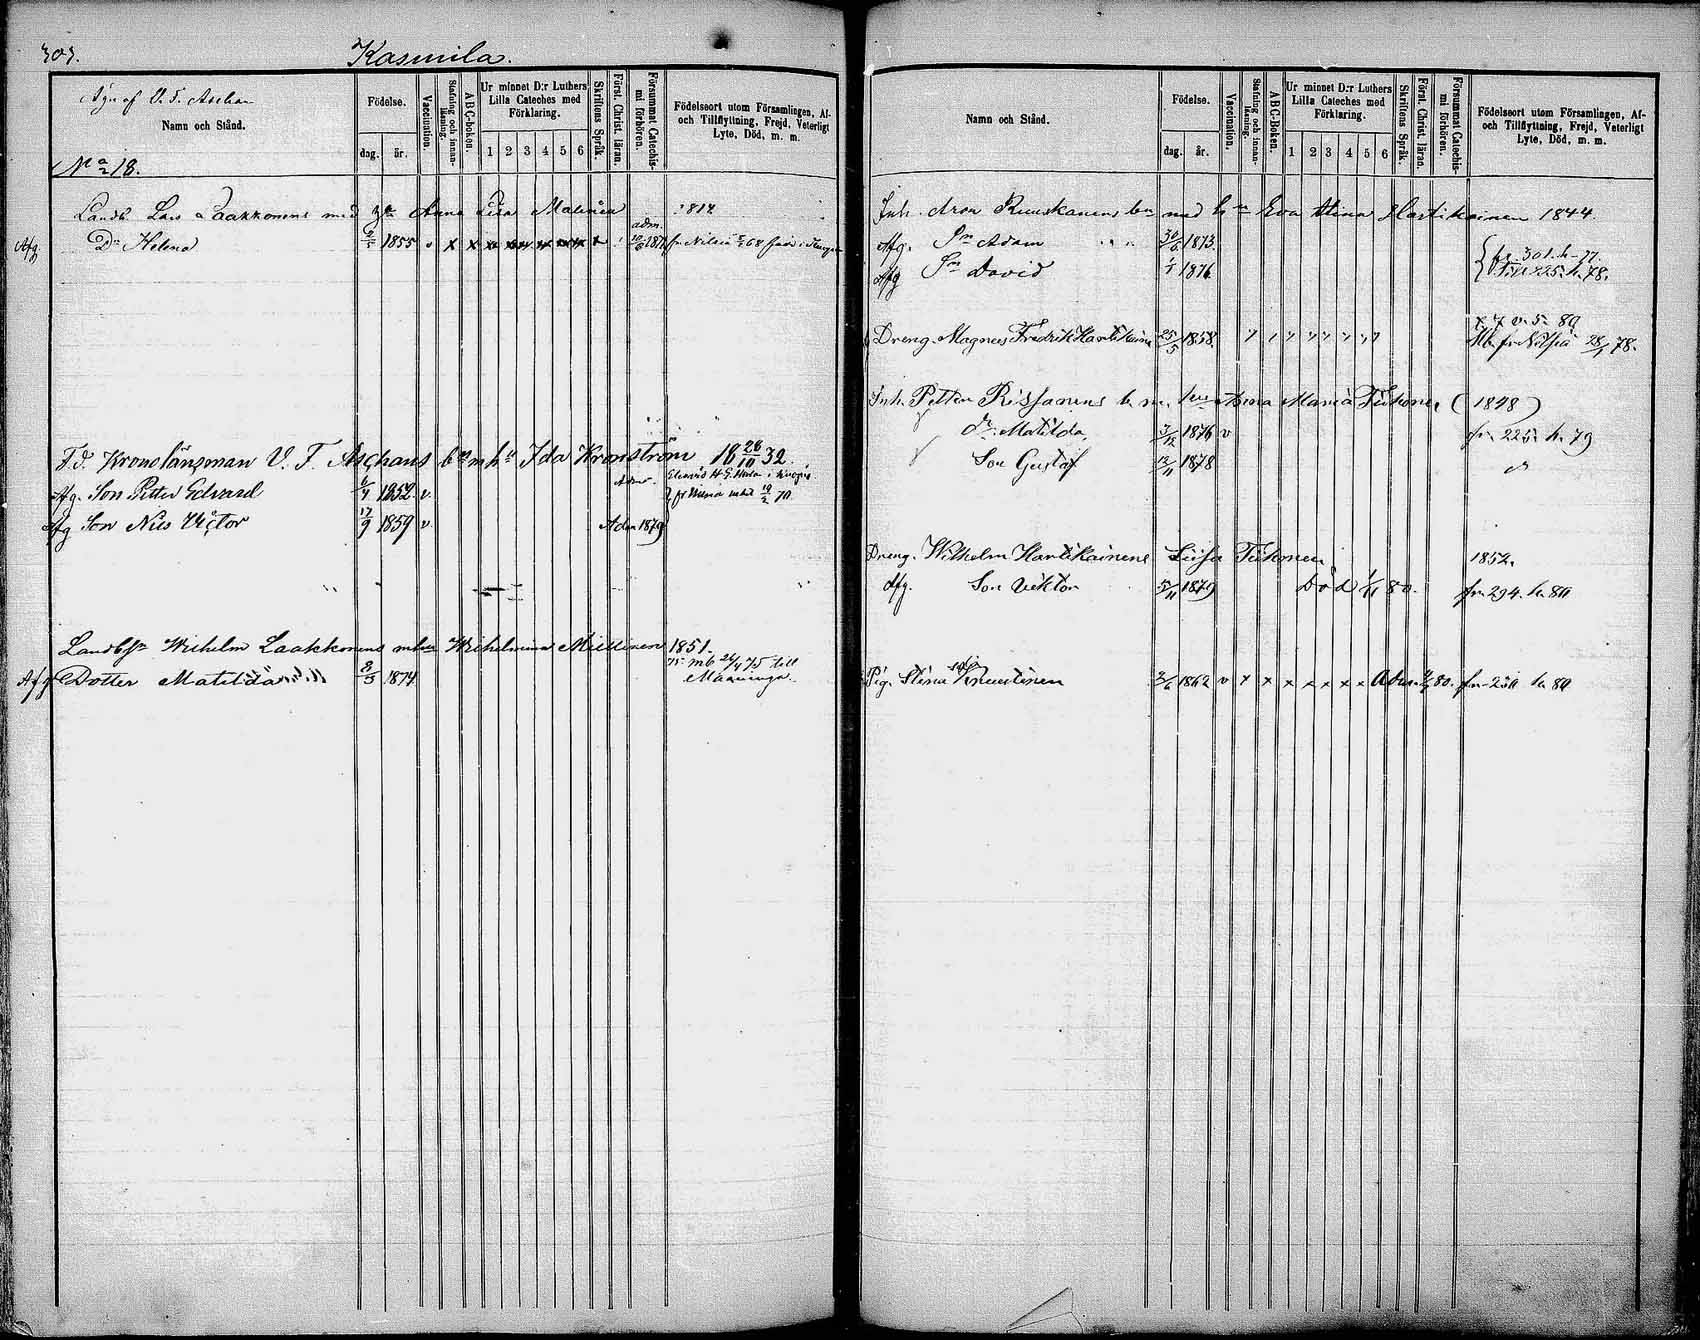 303.
Kasmila.
Äg. af V. F. Aschan
Namn och Stånd.
Födelse.
dag. år.
Vaccination.
Stafning och innanläsning.
ABC-boken.
Ur minnet D:r Luthers Lilla Cateches med Förklaring.
1 2 3 4 5 6
Skriftens Språk.
Först. Christ. läran.
Försummat Catechismi förhören.
Födelseort utom Församlingen, Af- och Tillflyttning, Frejd, Veterligt Lyte, Död, m. m.
No 18.
Landb. Lars Laakkonens med Anna Lisa Malinen 1814
Afg. Dr Helena 1855 v x x x x x x x x x adm. fr Nilsiä 68
F. d. Kronolänsman V. F. Aschans bn m hu Ida Kronström 18 26/10 32.
Afg. Son Petter Edvard 1852 v.
fr Nilsiä 19/2 70
Afg Son Nils Victor 17/9 1859 v. Adm 1879
Landb Sn Wilhelm Laakkonens m hu Wilhelmina Miettinen 1851.
Afg Dotter Matilda 8/3 1874 mb 24/4 75 till Maaninga
Namn och Stånd.
Födelse.
dag. år.
Vaccination.
Stafning och innanläsning.
ABC-boken.
Ur minnet D:r Luthers Lilla Cateches med Förklaring.
1 2 3 4 5 6
Skriftens Språk.
Först. Christ. läran.
Försummat Catechismi förhören.
Födelseort utom Församlingen, Af- och Tillflyttning, Frejd, Veterligt Lyte, Död, m. m.
Inh. Aron Ruuskanens bn med hu Eva Stina Hartikainen 1844.
Afg. Sn Adam 30/6 1873. fr. 301. h-77.
Afg Sn David 1876 Till 225. h. 78.
Dreng. Magnus Fredrik Hartikainen 25/5 1858. Mb. fr Nilsiä 28/1 78.
Inh. Petter Rissanens b. m. hu Anna Maria Tiihonen (1848)
dr Matilda 3/12 1876 v fr. 225. h. 79
Son Gustaf 12/11 1878
Dreng. Wilhelm Hartikainens Liisa Tiihonen 1852.
Afg. Son Viktor 5/11 1879 Död 1/11 80. fr. 294. h. 80
Pig. Stina Sofia Knuutinen 3/6 1862 v x x x x x x x Adm. 80. fr. h. 80